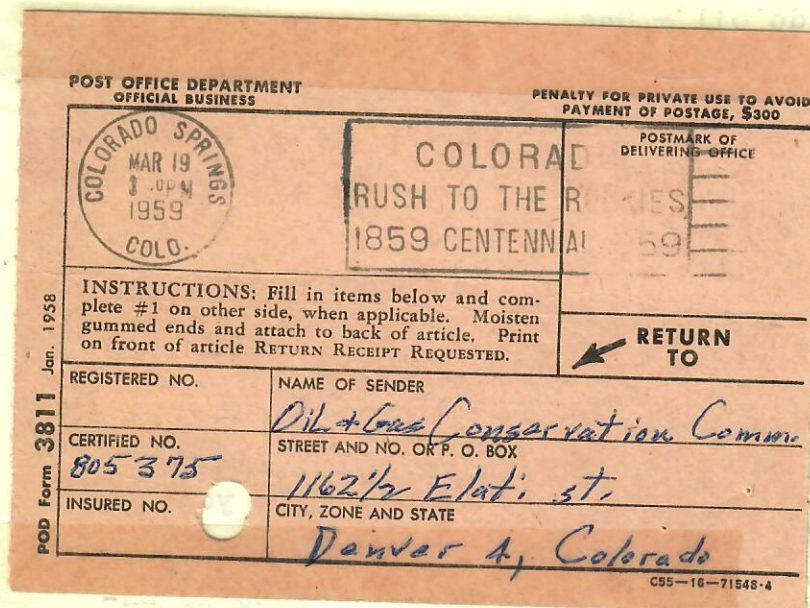 POST OFFICE DEPARTMENT
OFFICIAL BUSINESS
PENALTY FOR PRIVATE USE TO AVOID
PAYMENT OF POSTAGE, $300
COLORADO SPRINGS
MAR 19
PM
1959
COLO.
COLORAD
RUSH TO THE R KIES
1859 CENTENNIAL 59
POSTMARK OF
DELIVERING OFFICE
INSTRUCTIONS: Fill in items below and com-
plete #1 on other side, when applicable. Moisten
gummed ends and attach to back of article. Print
on front of article RETURN RECEIPT REQUESTED.
RETURN
TO
REGISTERED NO.
NAME OF SENDER
Oil & Gas Conservation Comm.
CERTIFIED NO.
805375
STREET AND NO. OR P. O. BOX
1162 1/2 Elati st.
INSURED NO.
CITY, ZONE AND STATE
Denver 4, Colorado
POD Form 3811 Jan. 1958
C55—16—71548-4